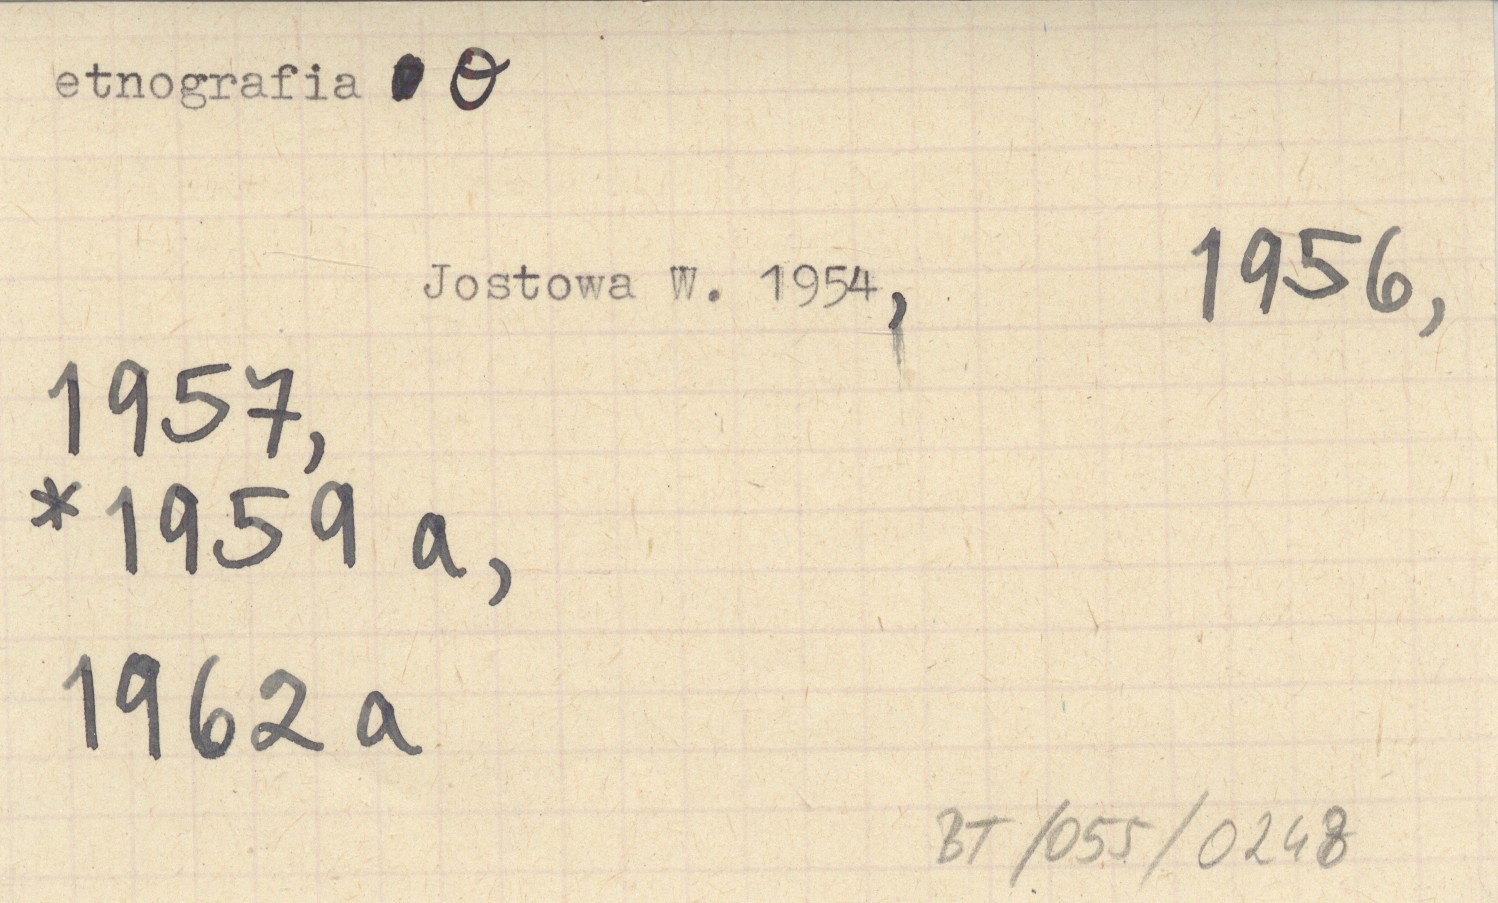 etnografia O
Jostowa W. 1954, 1956,
1957,
*1959 a,
1962 a
BT/055/0248